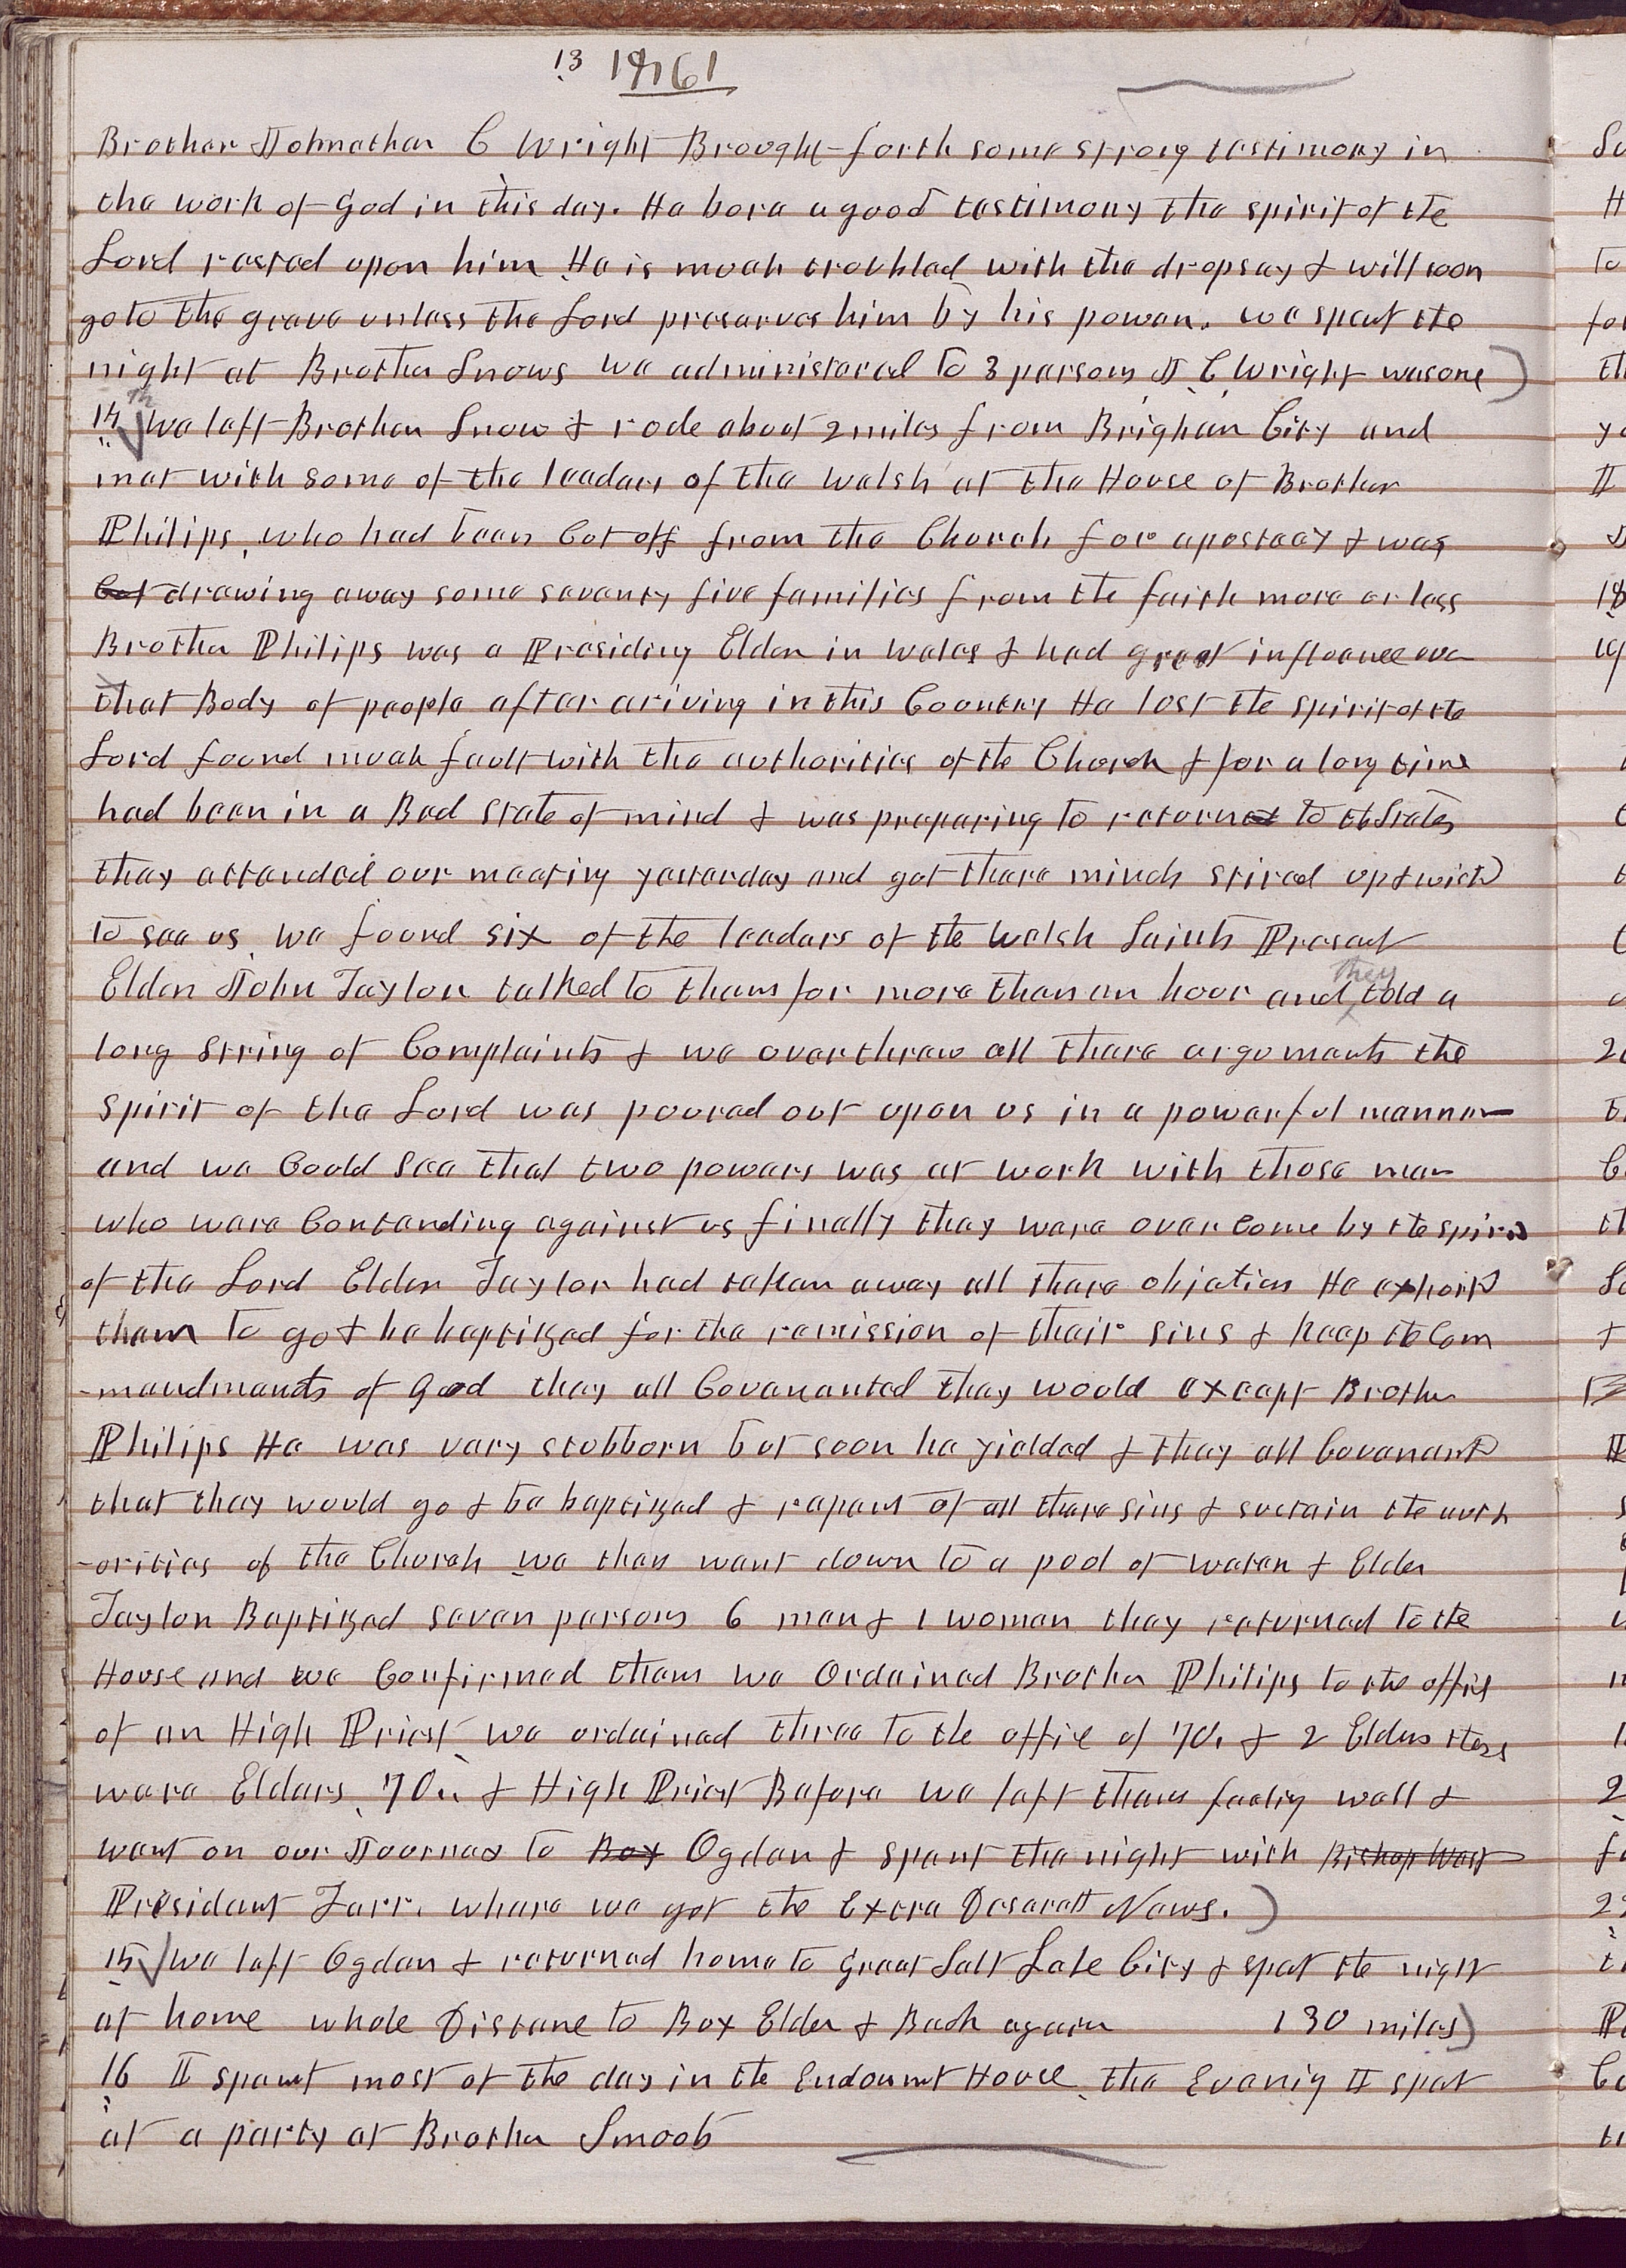 13 1861
Brother Johnathan C Wright Brought forth some strong testimony in
the work of God in this day. He bore a good testimony the spirit of the
Lord rested upon him He is much troubled with the dropsey & will soon
go to the grave unless the Lord preserves him by his power. we spent the
night at Brother Snows we administered to 3 persons J C Wright was one)
14th we left Brother Snow & rode about 2 miles from Brigham City and
met with some of the leaders of the Welsh at the House of Brother
Philips, who had been Cut off from the Church for apostacy & was
Cut drawing away some seventy five families from the faith more or less
Brother Philips was a Presiding Elder in Wales & had great influence over
that Body of people after ariving in this Country He lost the spirit of the
Lord found much fault with the authorities of the Church & for a long time
had been in a Bad state of mind & was preparing to return to the States
they attended our meeting yesterday and got there minds stired up & wished
to see us we found six of the leaders of the Welsh Saints Present
Elder John Taylor talked to them for more than an hour and they told a
long string of Complaints & we overthrew all there arguments the
spirit of the Lord was poured out upon us in a powerful manner
and we Could see that two powers was at work with those men
who were Contending against us finally they were over Come by the spirit
of the Lord Elder Taylor had taken away all there objetion He exhorted
them to go & be baptized for the remission of their sins & keep the Com
-mandments of God they all Covenanted they would except Brother
Philips He was very stubborn but soon he yielded & they all Covenanted
that they would go & be baptized & repent of all there sins & sustain the auth
-orities of the Church we then went down to a pool of water & Elder
Taylor Baptized seven persons 6 men & 1 woman they returned to the
House and we Confirmed them we Ordained Brother Philips to the office
of an High Priest we ordained three to the office of 70. & 2 Elders these
were Elders, 70.. & High Priest Before we left them feeling well &
went on our Journey to Box Ogden & spent the night with Bishop West
President Farr. where we got the Extra Desarett News.)
15 we left Ogden & returned home to Great Salt Lake City & spet the night
at home whole Distane to Box Elder & Back again 130 miles)
16 I spent most of the day in the Endowmt House the Evenig I spet
at a party at Brother Smoots